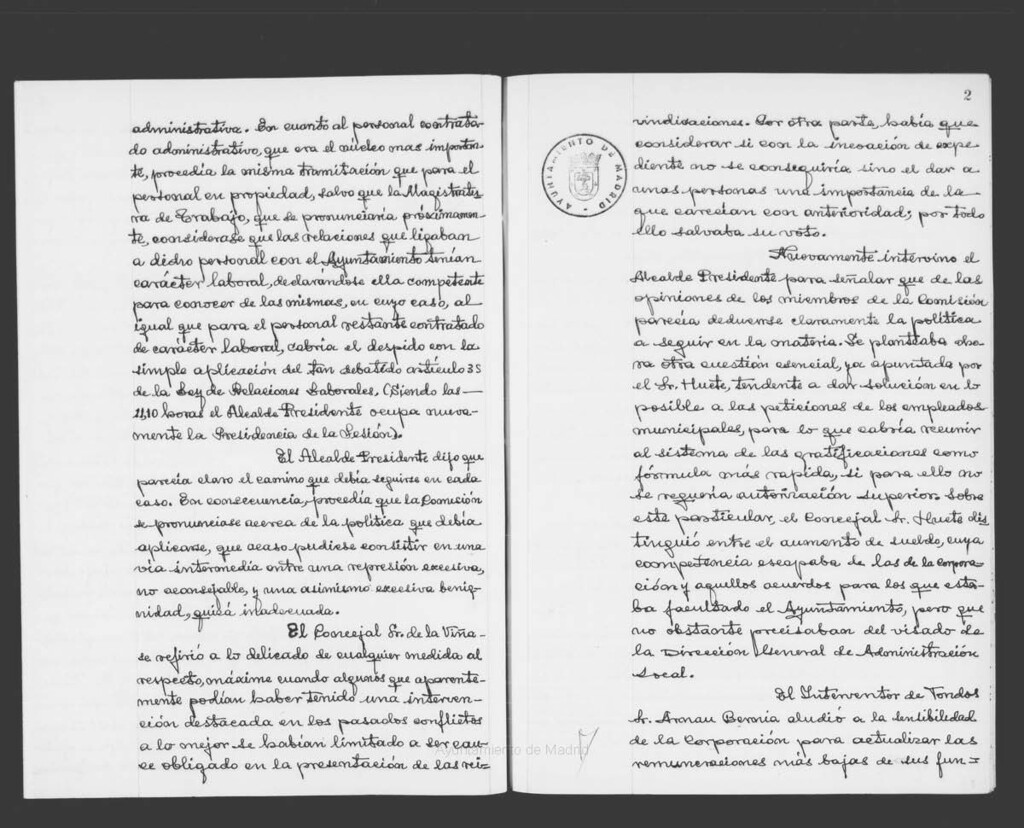 administrativa. En cuanto al personal contrata-
do administrativo, que era el núcleo mas importan-
te, procedía la misma tramitación que para el
personal en propiedad, salvo que la Magistratu-
ra de Trabajo, que se pronunciaría próximamen-
te, considerase que las relaciones que ligaban
a dicho personal con el Ayuntamiento tenían
carácter laboral, declarándose ella competente
para conocer de las mismas, en cuyo caso, al
igual que para el personal restante contratado
de carácter laboral, cabría el despido con la
simple aplicación del tan debatido artículo 35
de la Ley de Relaciones Laborales, (Siendo las —
11,10 horas el Alcalde Presidente ocupa nueva-
mente la Presidencia de la Sesión).
El Alcalde Presidente dijo que
parecía claro el camino que debía seguirse en cada
caso. En consecuencia, procedía que la Comisión
se pronunciase acerca de la política que debía
aplicarse, que acaso pudiese consistir en una
vía intermedia entre una represión excesiva,
no aconsejable, y una asimismo excesiva benig-
nidad, quizá inadecuada.
El Concejal Sr. de la Viña -
se refirió a lo delicado de cualquier medida al
respecto, máxime cuando algunos que aparente-
mente podían haber tenido una interven-
ción destacada en los pasados conflictos
a lo mejor se habían limitado a ser cau-
ce obligado en la presentación de las rei=
2
AYUNTAMIENTO DE MADRID
vindicaciones. Por otra parte, había que
considerar si con la incoación de expe-
diente no se conseguiría sino el dar a
unas personas una importancia de la
que carecían con anterioridad; por todo
ello salvaba su voto.
Nuevamente intervino el
Alcalde Presidente para señalar que de las
opiniones de los miembros de la Comisión
parecía deducirse claramente la política
a seguir en la materia. Se planteaba aho-
ra otra cuestión esencial, ya apuntada por
el Sr. Huete, tendente a dar solución en lo
posible a las peticiones de los empleados
municipales, para lo que cabría recurrir
al sistema de las gratificaciones como
fórmula más rapida, si para ello no
se requería autorización superior. Sobre
este particular, el Concejal Sr. Huete dis-
tinguió entre el aumento de sueldo, cuya
competencia escapaba de las de la Corpora-
ción y aquellos acuerdos para los que esta-
ba facultado el Ayuntamiento, pero que
no obstante precisaban del visado de
la Dirección General de Administración
Local.
El Interventor de Fondos
Sr. Arnau Bernia aludió a la sensibilidad
de la Corporación para actualizar las
remuneraciones más bajas de sus fun-=
Ayuntamiento de Madrid